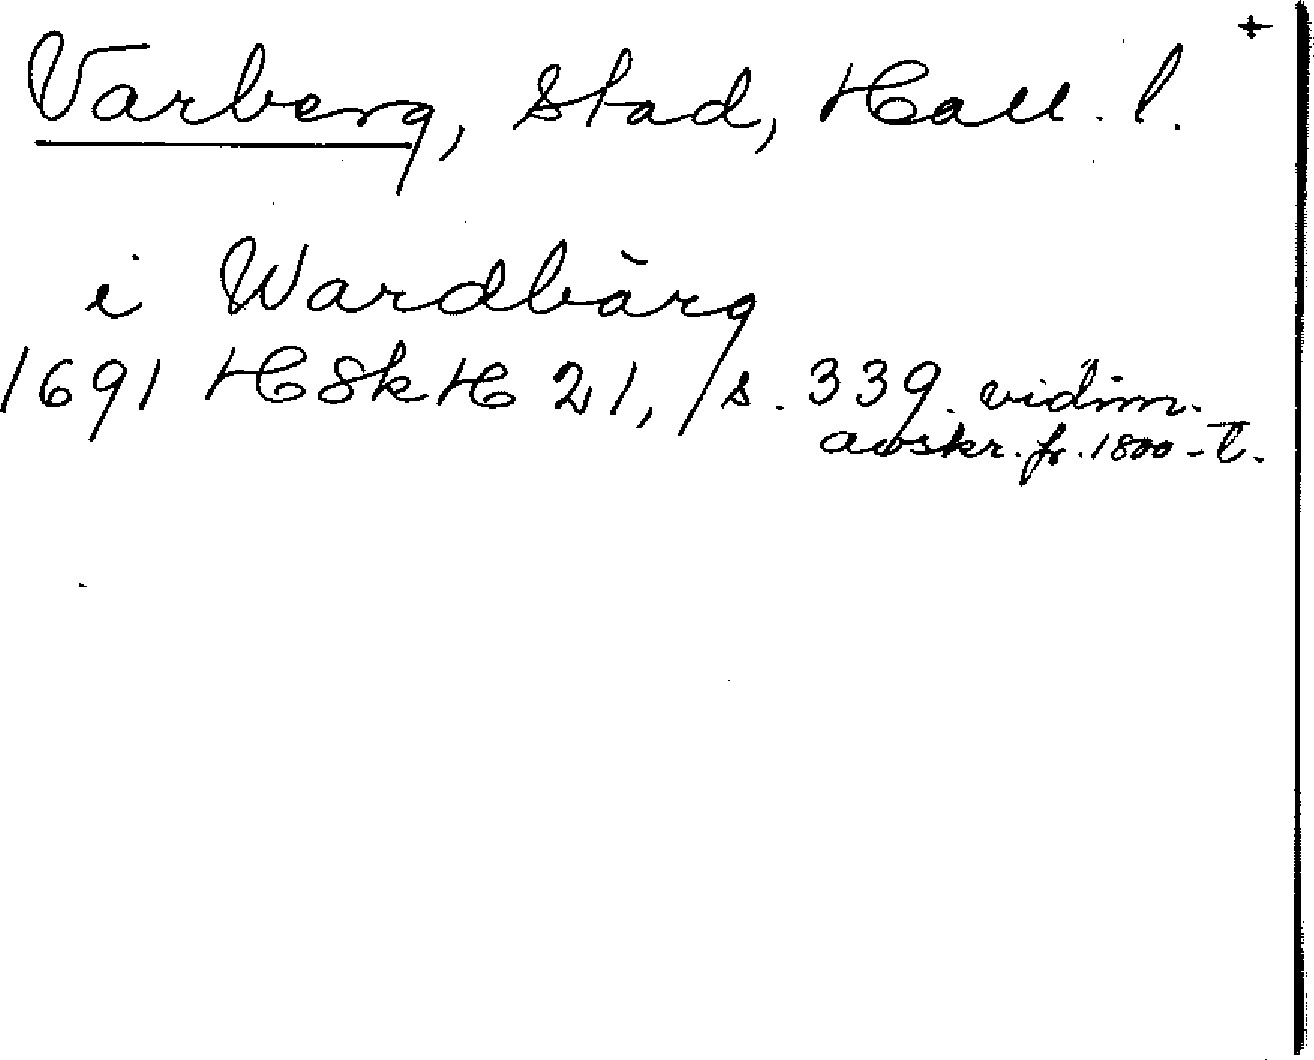 Varberg, stad, Hall. l. +
i Wardbärg
1691 HSkH 21, s. 339. vidim.
avskr. fr. 1800-t.